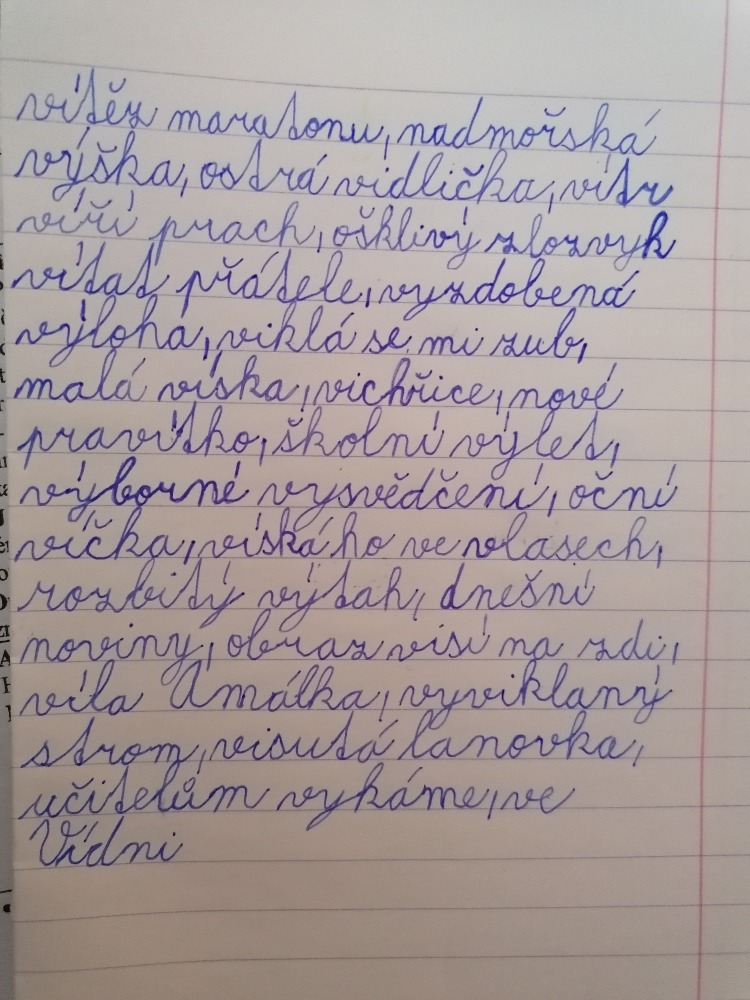 vítěz maratonu, nadmořská
výška, ostrá vidlička, vítr
víří prach, ošklivý zlozvyk
vítat přátele, vyzdobená
výloha, viklá se mi zub,
malá víska, vichřice, nové
pravítko, školní výlet,
výborné vysvědčení, oční
víčka, víská ho ve vlasech,
rozbitý výtah, dnešní
noviny, obraz visí na zdi,
víla Amálka, vyviklaný
strom, visutá lanovka,
učitelům vykáme, ve
Vídni